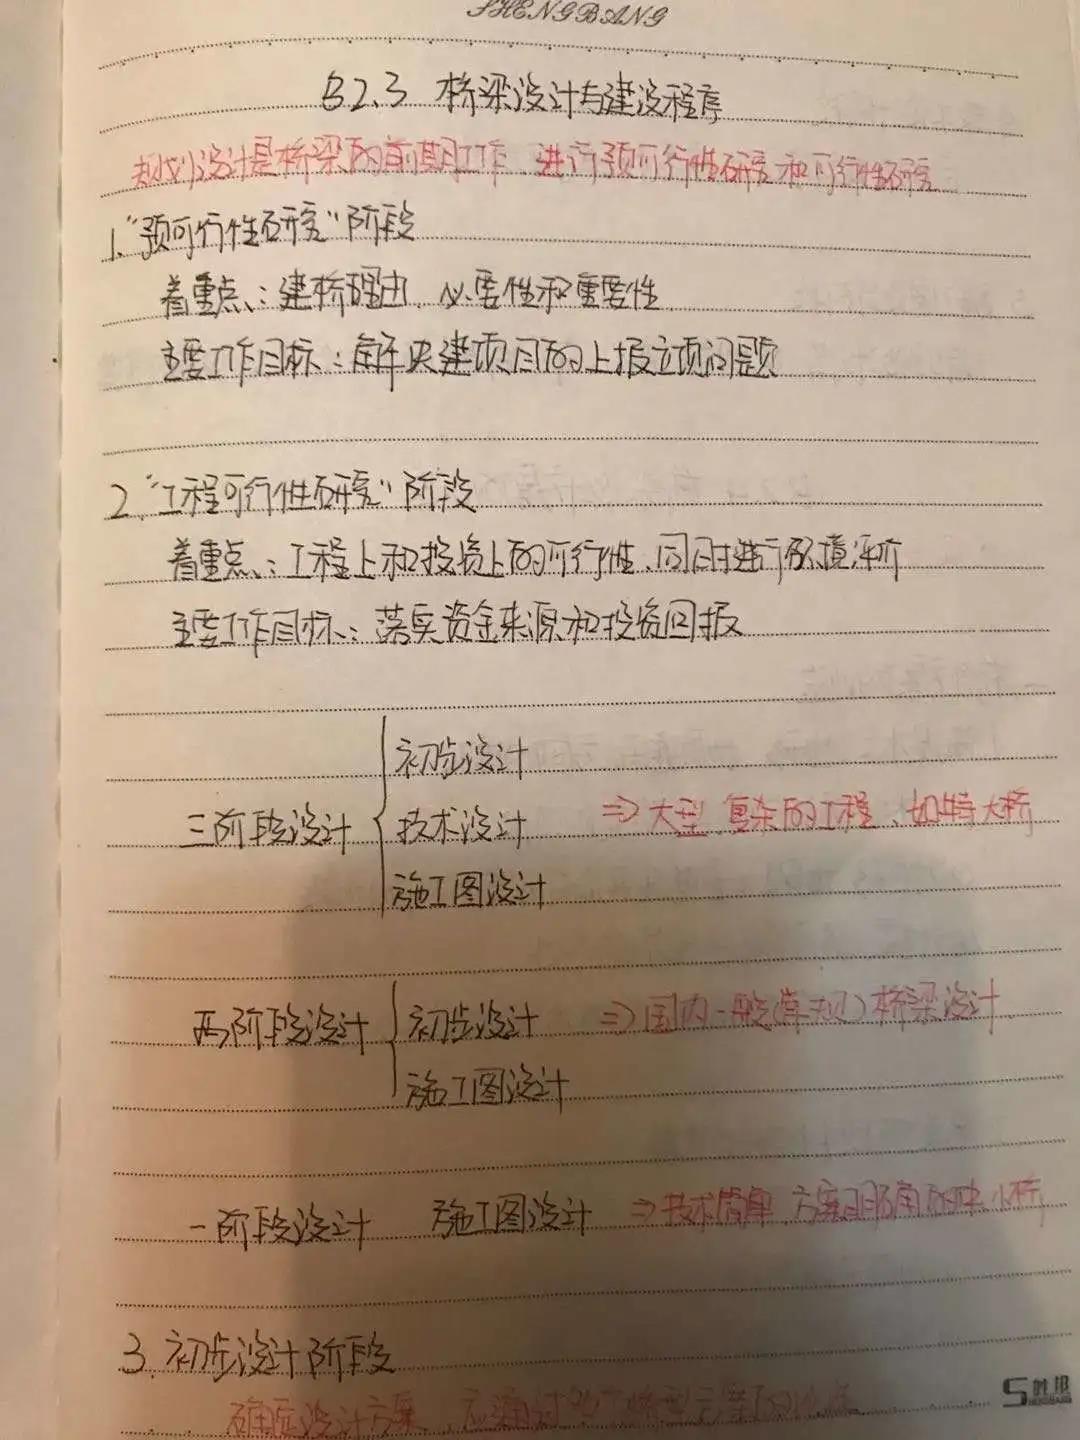 SHENGBANG
§2.3 桥梁设计与建设程序
规划设计是桥梁的前期工作、进行预可行性研究和可行性研究
1、“预可行性研究”阶段
着重点：建桥理由、必要性和重要性
主要工作目标：解决建项目的上报立项问题
2、“工程可行性研究”阶段
着重点：工程上和投资上的可行性、同时进行环境评价
主要工作目标：落实资金来源和投资回报
初步设计
三阶段设计 技术设计 ⇒大型、复杂的工程、如特大桥
施工图设计
两阶段设计 初步设计 ⇒国内一般(常规)桥梁设计
施工图设计
一阶段设计 施工图设计 ⇒技术简单、方案明确的中、小桥
3、初步设计阶段
确定设计方案、应通过
胜邦
SHENGBANG